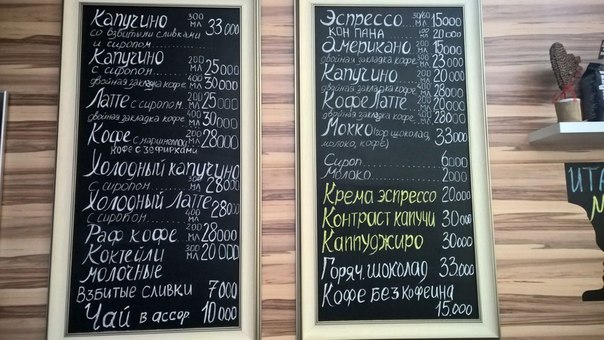 Капучино 300 мл 33 000
со взбитыми сливками
и сиропом
Капучино
с сиропом 200 мл 25000
двойная закладка кофе 400 мл 30000
Латте с сиропом 200 мл 25000
двойная закладка кофе 400 мл 30000
Кофе с маршмеллоу 200 мл 28000
кофе с зефирками
Холодный капучино
с сиропом 300 мл 28000
Холодный Латте
с сиропом 400 мл 28000
Раф кофе 200 мл 28000
Коктейли 300 мл 20 000
молочные
Взбитые сливки 7000
Чай в ассор 10 000
Эспрессо 30/60 мл 15000
кон пана 20 000
Американо 200 мл 15000
двойная закладка кофе 23000
Капучино 200 мл 20 000
двойная закладка кофе 28000
Кофе Латте 200 мл 20000
двойная закладка кофе 28000
Мокко (гор шоколад, 33000
молоко, кофе)
Сироп 6000
Молоко 2000
Крема эспрессо 20 000
Контраст капучи 30 000
Каппуджиро 30 000
Горяч шоколад 33000
Кофе без кофеина
15.000
ИТА